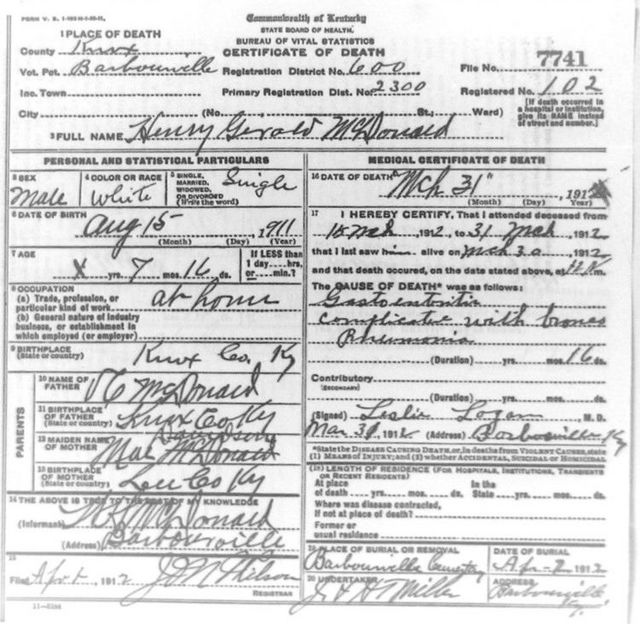 FORM V. S.
Commonwealth of Kentucky
STATE BOARD OF HEALTH,
BUREAU OF VITAL STATISTICS
CERTIFICATE OF DEATH
1 PLACE OF DEATH
County Knox
Vot. Pct. Barbourville
Inc. Town
City (No. St.; Ward)
Registration District No. 600
Primary Registration Dist. No. 2300
File No. 7741
Registered No. 102
[If death occurred in a hospital or institution, give its NAME instead of street and number.]
3 FULL NAME Henry Gerald McDonald
PERSONAL AND STATISTICAL PARTICULARS
3 SEX Male
4 COLOR OR RACE White
5 SINGLE, MARRIED, WIDOWED, OR DIVORCED (Write the word) Single
6 DATE OF BIRTH Aug 15, 1911
(Month) (Day) (Year)
7 AGE x yrs. 7 mos. 16 ds.
If LESS than 1 day....hrs. or....min.?
8 OCCUPATION
(a) Trade, profession, or particular kind of work at home
(b) General nature of industry business, or establishment in which employed (or employer)
9 BIRTHPLACE (State or country) Knox Co, Ky
PARENTS
10 NAME OF FATHER McDonald
11 BIRTHPLACE OF FATHER (State or country) Knox Co Ky
12 MAIDEN NAME OF MOTHER McDonald
13 BIRTHPLACE OF MOTHER (State or country) Lee Co Ky
14 THE ABOVE IS TRUE TO THE BEST OF MY KNOWLEDGE
(Informant) McDonald
(Address) Barbourville
15
Filed Apr 1, 1912
REGISTRAR
MEDICAL CERTIFICATE OF DEATH
16 DATE OF DEATH Mch 31 191
(Month) (Day) (Year)
17 I HEREBY CERTIFY, That I attended deceased from
15 Mch, 1912, to 31 Mch, 1912
that I last saw him alive on Mch 30, 1912
and that death occured, on the date stated above, at m.
The CAUSE OF DEATH* was as follows:
complicated with
Pneumonia
(Duration) yrs. mos. 16 ds.
Contributory
(SECONDARY)
(Duration) yrs. mos. ds.
(Signed) Leslie Logan M. D.
Mar 31, 1912 (Address) Barbourville Ky
*State the DISEASE CAUSING DEATH, or, in deaths from VIOLENT CAUSES, state (1) MEANS OF INJURY; and (2) whether ACCIDENTAL, SUICIDAL or HOMICIDAL.
18 LENGTH OF RESIDENCE (FOR HOSPITALS, INSTITUTIONS, TRANSIENTS OR RECENT RESIDENTS)
At place of death yrs. mos. ds. In the State yrs. mos. ds.
Where was disease contracted, if not at place of death?
Former or usual residence
19 PLACE OF BURIAL OR REMOVAL Barbourville Cemetery
DATE OF BURIAL Apr-2 1912
20 UNDERTAKER Miller
ADDRESS Barbourville Ky.